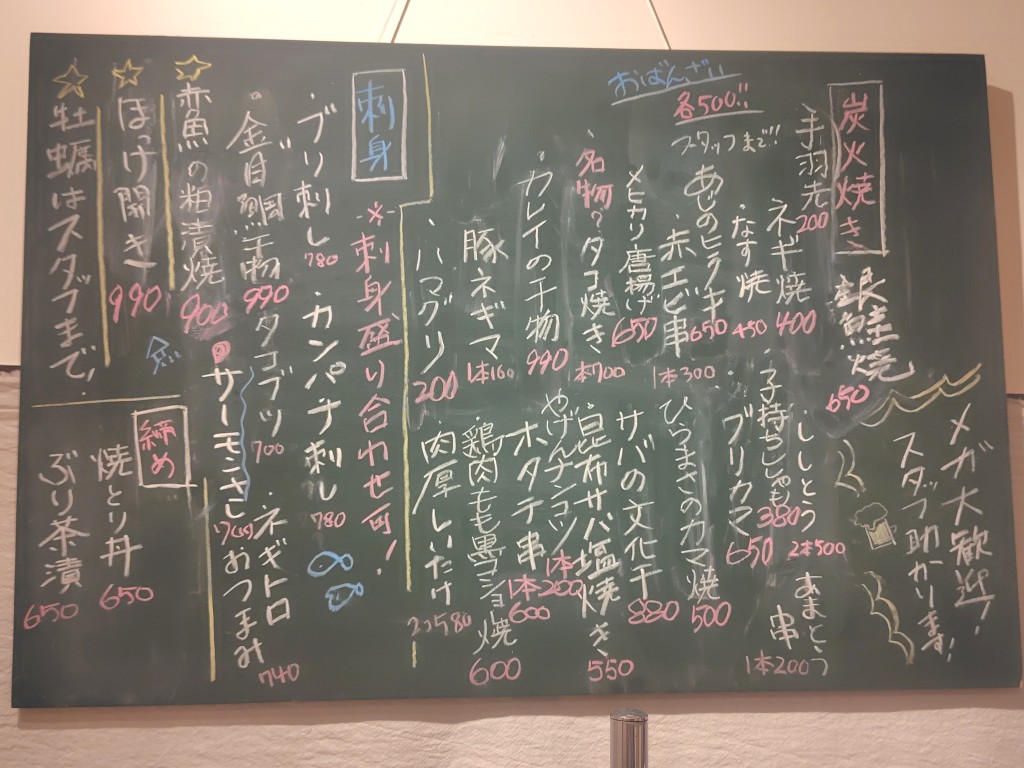 おばんざい
各500!!
スタッフまで!!
炭火焼き
銀鮭焼
650
手羽先
200
ネギ焼
400
・ししとう
2本500
あまとう
串
1本200
なす焼
450
・子持ちししゃも
380
あじのヒラキ
650
・ブリカマ
650
・赤エビ串
1本300
ひらまさのカマ焼
500
メヒカリ唐揚げ
650
サバの文化干
880
・名物?タコ焼き
1本700
・昆布サバ塩焼き
550
・カレイの干物
990
やげんナンコツ
1本200
ホタテ串
1本600
豚ネギマ
1本160
・鶏肉もも黒コショ焼
600
・ハマグリ
200
・肉厚しいたけ
2コ580
メガ大歓迎!
スタッフ助かります!
刺身
※刺身盛り合わせ可!
・ブリ刺し
780
・カンパチ刺し
780
・金目鯛干物
990
タコブツ
700
・ネギトロ
おつまみ
740
・サーモンさし
☆赤魚の粕漬焼
900
☆ほっけ開き
990
☆牡蠣はスタッフまで!
締め
焼とり丼
650
ぶり茶漬
650